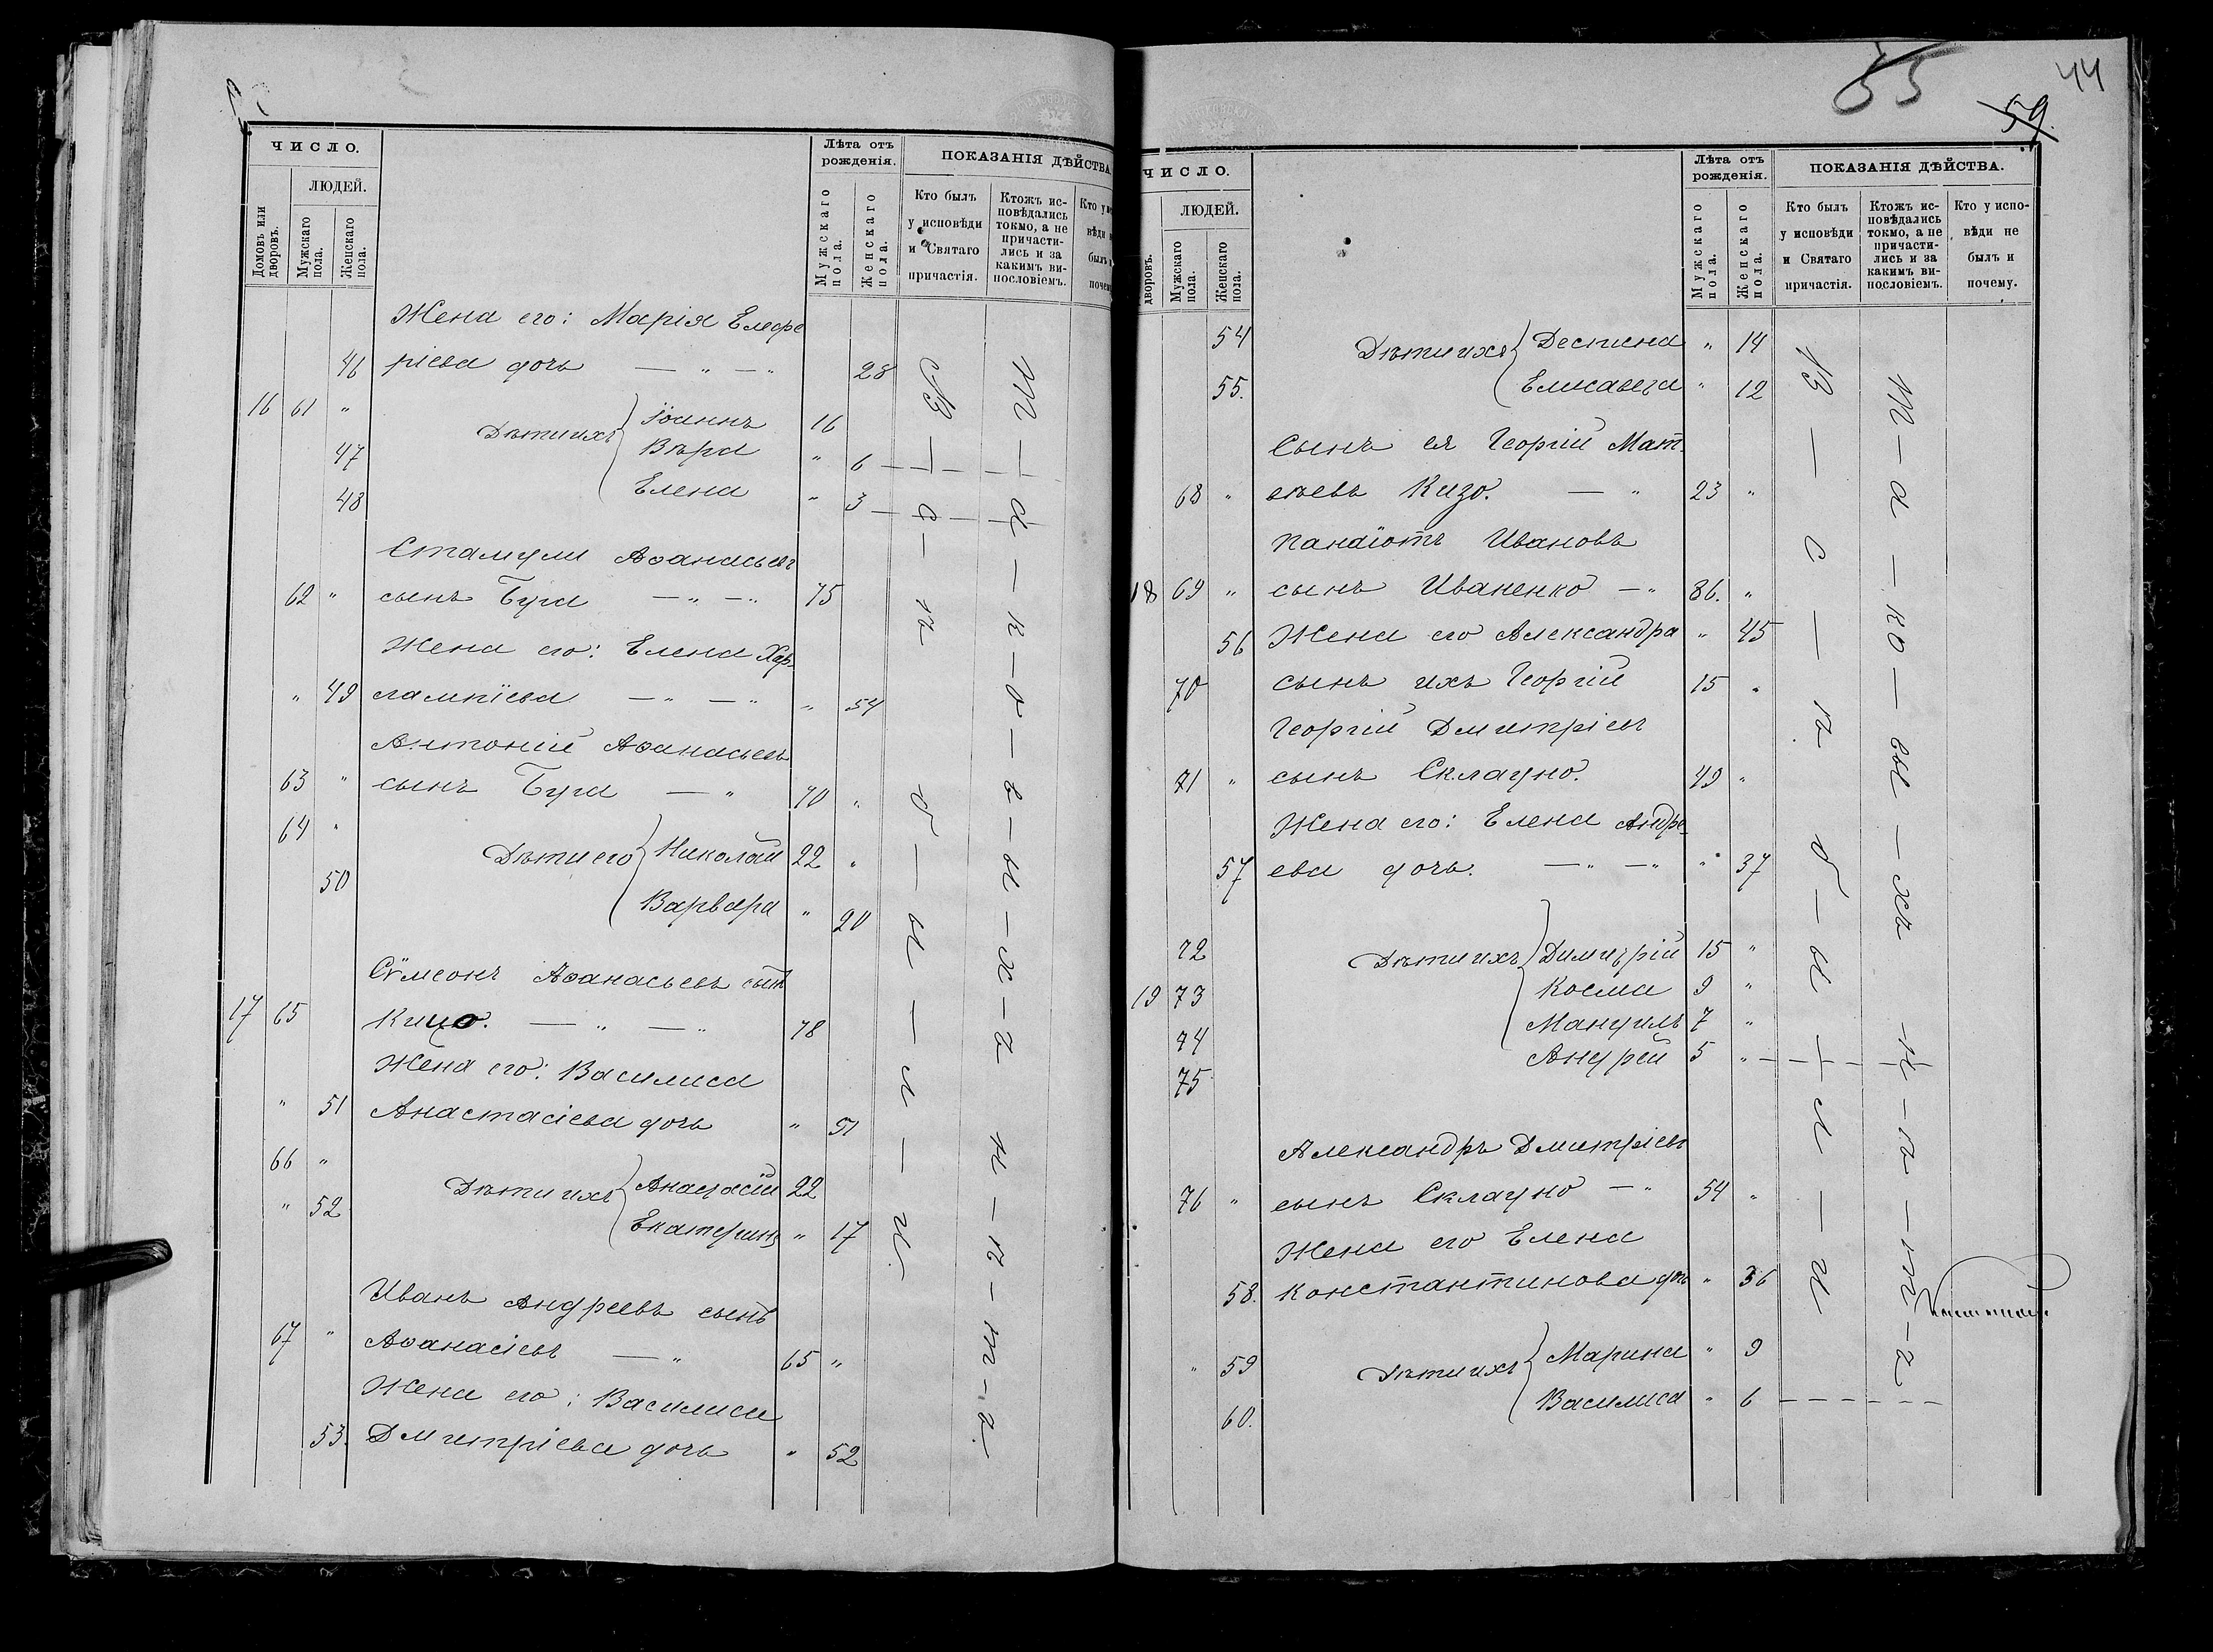 ЧИСЛО.
ЛЮДЕЙ.
Домовъ или дворовъ.
Мужскаго пола.
Женскаго пола.
Лѣта отъ рожденія.
Мужскаго пола.
Женскаго пола.
ПОКАЗАНІЯ ДѢЙСТВА.
Кто былъ у исповѣди и Святаго причастія.
Ктожъ исповѣдались токмо, а не причастились и за какимъ винословіемъ.
Жена его: Марія Елефе
46 ріева дочь — " — " 28
16 61 " Дѣти ихъ Іоаннъ 16
47 Вѣра " 6
48 Елена " 3
Стамули Аѳанасьевъ
62 " сынъ Буга — " — " 75
Жена его: Елена Хар-
" 49 лампіева — " — " " 54
Антоній Аѳанасьевъ
63 " сынъ Буга — " 70 "
64 " Дѣти его Николай 22 "
50 Варвара " 20
Сѵмеонъ Аѳанасьевъ сынъ
17 65 Кицо. — " — " 78
Жена его: Василиса
" 51 Анастасіева дочь " 51
66 " Дѣти ихъ Анастасій 22
" 52 Екатерина " 17
Иванъ Андреевъ сынъ
67 " Аѳанасіевъ — " 65 "
Жена его: Василиса
53. Дмитріева дочь " 52
55
44
59.
ЧИСЛО.
ЛЮДЕЙ.
дворовъ.
Мужскаго пола.
Женскаго пола.
Лѣта отъ рожденія.
Мужскаго пола.
Женскаго пола.
ПОКАЗАНІЯ ДѢЙСТВА.
Кто былъ у исповѣди и Святаго причастія.
Ктожъ исповѣдались токмо, а не причастились и за какимъ винословіемъ.
Кто у исповѣди не былъ и почему.
54 Дѣти ихъ Деспина " 14
55. Елисавета " 12
Сынъ ея Георгій Мат-
68 " ѳеевъ Кизо. — " 23 "
Панаіотъ Ивановъ
18 69 " сынъ Иваненко — " 86. "
56 Жена его Александра " 45
70 сынъ ихъ Георгій 15 "
Георгій Дмитріевъ
71 " сынъ Склауно. 49 "
Жена его: Елена Андре-
57 ева дочь. — " — " " 37
72 Дѣти ихъ Димитрій 15 "
19 73 Косма 9 "
74 Мануилъ 7 "
75 Андрей 5 "
Александръ Дмитріевъ
76 " сынъ Склауно — " 54 "
Жена его Елена
58. Константинова дочь " 36
" 59 Дѣти ихъ Марина " 9
60. Василиса " 6